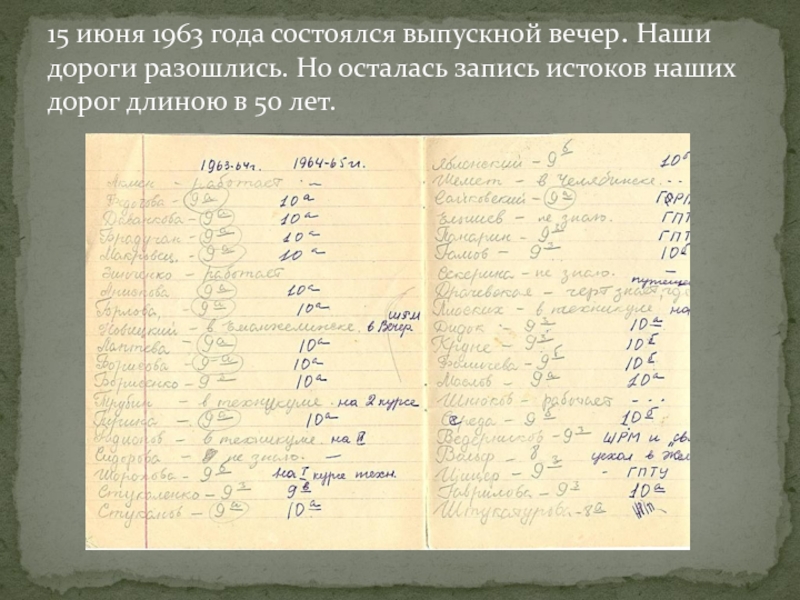 15 июня 1963 года состоялся выпускной вечер. Наши
дороги разошлись. Но осталась запись истоков наших
дорог длиною в 50 лет.
1963-64г. 1964-65 гг.
– работает –
Федотова – 9а 10а
Даванкова – 9а 10а
Брадучан – 9а 10а
Маковец. – 9а 10а
– работает
9а 10а
– 9а 10а
Новицкий – в Еманжелинске. в Вечер. ШРМ
Лаптева 9а 10а
Борисова – 9а 10а
Борисенко – 9 10а
Трубин – в техникуме. на 2 курсе
– 9а 10а
Родионов – в техникуме. на II
Сидорова – не знаю. –
Шорохова – 9б на I курсе техн.
Стукаленко – 9 9в
Стуканов – 9а 10а
Яблонский – 9б 10б
Шемет – в Челябинске. - -
Сайковский – 9а
– не знаю. ГПТ
Панарин – 9 ГПТ
Гамов – 9 10б
Секерина – не знаю. –
Драчевская – черт знает, где
Плоских – в техникуме на
Дидок – 9 10а
9 10б
9б 10б
Маслов – 9а 10а
Шнюков – работает - - -
Середа – 9б 10б
Ведерников – 9 ШРМ и
Вальер – 8 уехал в Жел
– 9 - ГПТУ
Гаврилова – 9 10а
Штукатурова – 8а